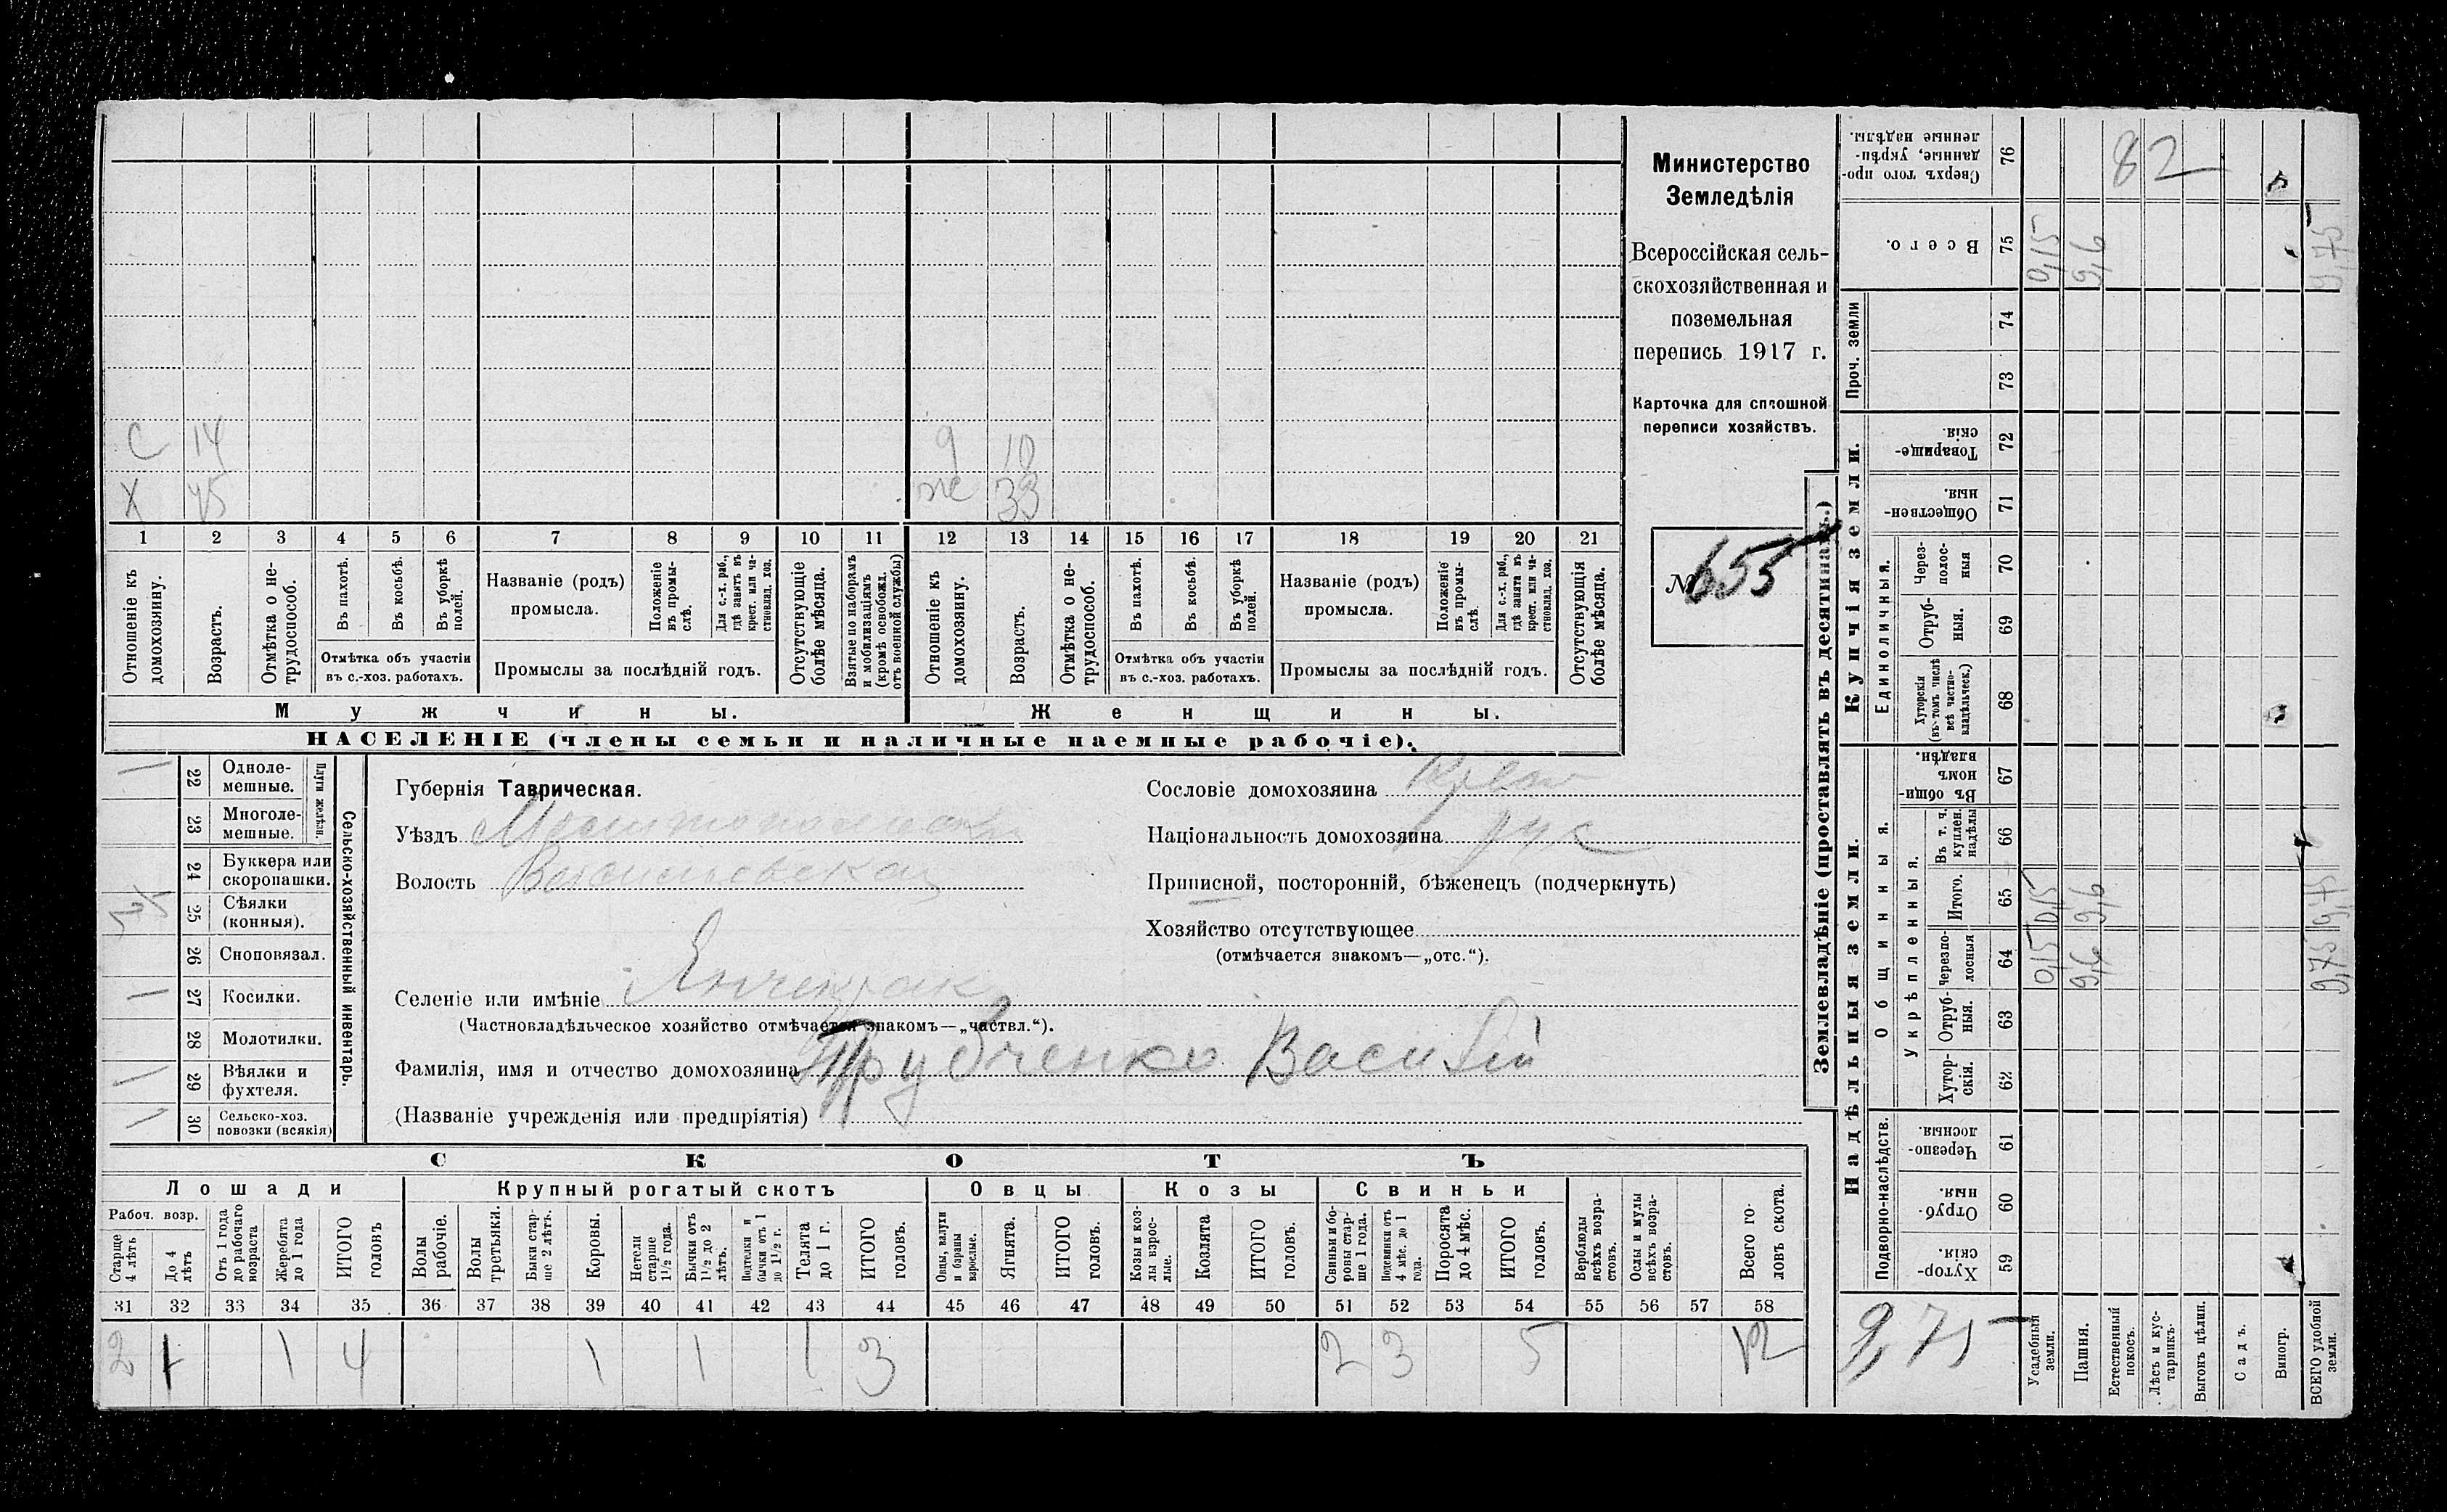 С 14 9 10
Х 45 ж 33
1 2 3 4 5 6 7 8 9 10 11 12 13 14 15 16 17 18 19 20 21
Отношеніе къ домохозяину.
Возрастъ.
Отмѣтка о не-трудоспособ.
Въ пахотѣ.
Въ косьбѣ.
Въ уборкѣ полей.
Отмѣтка объ участіи
въ с.-хоз. работахъ.
Названіе (родъ)
промысла.
Положеніе въ промы-слѣ.
Для с.-х. раб., гдѣ занятъ въ крест. или ча-стновлад. хоз.
Промыслы за послѣдній годъ.
Отсутствующіе болѣе мѣсяца.
Взятые по наборамъ и мобилизаціямъ (кромѣ освобожд. отъ военной службы)
Отношеніе къ домохозяину.
Возрастъ.
Отмѣтка о не-трудоспособ.
Въ пахотѣ.
Въ косьбѣ.
Въ уборкѣ полей.
Отмѣтка объ участіи
въ с.-хоз. работахъ.
Названіе (родъ)
промысла.
Положеніе въ промы-слѣ.
Для с.-х. раб., гдѣ занята въ крест. или ча-стновлад. хоз.
Промыслы за послѣдній годъ.
Отсутствующія болѣе мѣсяца.
Мужчины. Женщины.
НАСЕЛЕНІЕ (члены семьи и наличные наемные рабочіе).
Министерство
Земледѣлія
Всероссійская сель-
скохозяйственная и
поземельная
перепись 1917 г.
Карточка для сплошной
переписи хозяйствъ.
№ 655
Сельско-хозяйственный инвентарь.
Плуги желѣзн.
22 Одноле-мешные.
23 Многоле-мешные.
24 Буккера или скоропашки.
25 Сѣялки (конныя).
26 Сноповязал.
27 Косилки.
28 Молотилки.
29 Вѣялки и фухтеля.
30 Сельско-хоз. повозки (всякія)
Губернія Таврическая.
Уѣздъ Мелитопольскій
Волость Васильевская
Селеніе или имѣніе Янчекрак
(Частновладѣльческое хозяйство отмѣчается знакомъ—„частвл.“).
Фамилія, имя и отчество домохозяина Трубченко Василій
(Названіе учрежденія или предпріятія)
Сословіе домохозяина Крест
Національность домохозяина рус
Приписной, посторонній, бѣженецъ (подчеркнуть)
Хозяйство отсутствующее
(отмѣчается знакомъ—„отс.“).
СКОТЪ
Лошади Крупный рогатый скотъ Овцы Козы Свиньи
Рабоч. возр.
Старще 4 лѣтъ
До 4 лѣтъ
Отъ 1 года до рабочаго возраста
Жеребята до 1 года
ИТОГО головъ
Волы рабочіе.
Волы третьяки.
Быки стар-ше 2 лѣтъ.
Коровы.
Нетели старше 1½ года.
Бычки отъ 1½ до 2 лѣтъ.
Подтелки и бычки отъ 1 до 1½ г.
Телята до 1 г.
ИТОГО головъ.
Овцы, валухи и бараны взрослые.
Ягнята.
ИТОГО головъ.
Козы и коз-лы взрос-лые.
Козлята
ИТОГО головъ.
Свиньи и бо-ровы стар-ше 1 года.
Подсвинки отъ 4 мѣс. до 1 года.
Поросята до 4 мѣс.
ИТОГО головъ.
Верблюды всѣхъ возра-стовъ.
Ослы и мулы всѣхъ возра-стовъ.
Всего го-ловъ скота.
31 32 33 34 35 36 37 38 39 40 41 42 43 44 45 46 47 48 49 50 51 52 53 54 55 56 57 58
2 1 1 4 1 1 1 3 2 3 5 12
Землевладѣніе (проставлять въ десятинахъ.)
Купчія земли.
Надѣльныя земли.
Проч. земли
Единоличныя.
Общинныя.
Укрѣпленныя.
Подворно-наслѣдств.
Сверхъ того про-данные, укрѣп-ленные надѣлы. 76 82
Всего. 75 0,15 9,6 9,75
74
73
Товарище-скія. 72
Обществен-ныя. 71
Через-полос-ныя 70
Отруб-ныя. 69
Хуторскія (въ томъ числѣ всѣ частно-владѣльческ.) 68
Въ общи-номъ владѣн. 67
Въ т. ч. куплен. надѣлы 66
Итого. 65 0,15 9,6 9,75
Черезпо-лосныя 64 0,15 9,6 9,75
Отруб-ныя. 63
Хутор-скія. 62
Черезпо-лосныя. 61
Отруб-ныя. 60
Хутор-скія. 59
9,75
Усадебный земли.
Пашня.
Естественный покосъ.
Лѣсъ и кус-тарникъ.
Выгонъ цѣлин.
Садъ.
Виногр.
ВСЕГО удобной земли.